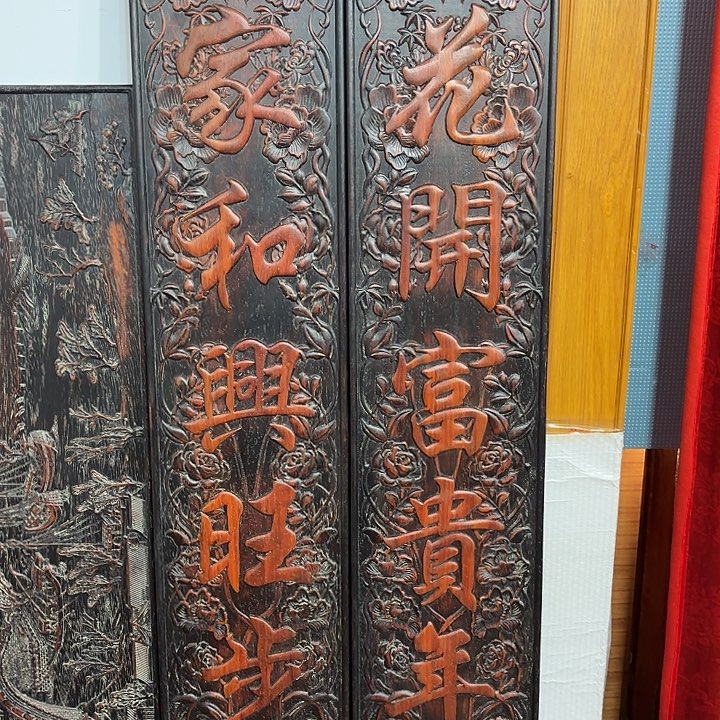 花開富貴年
家和興旺步